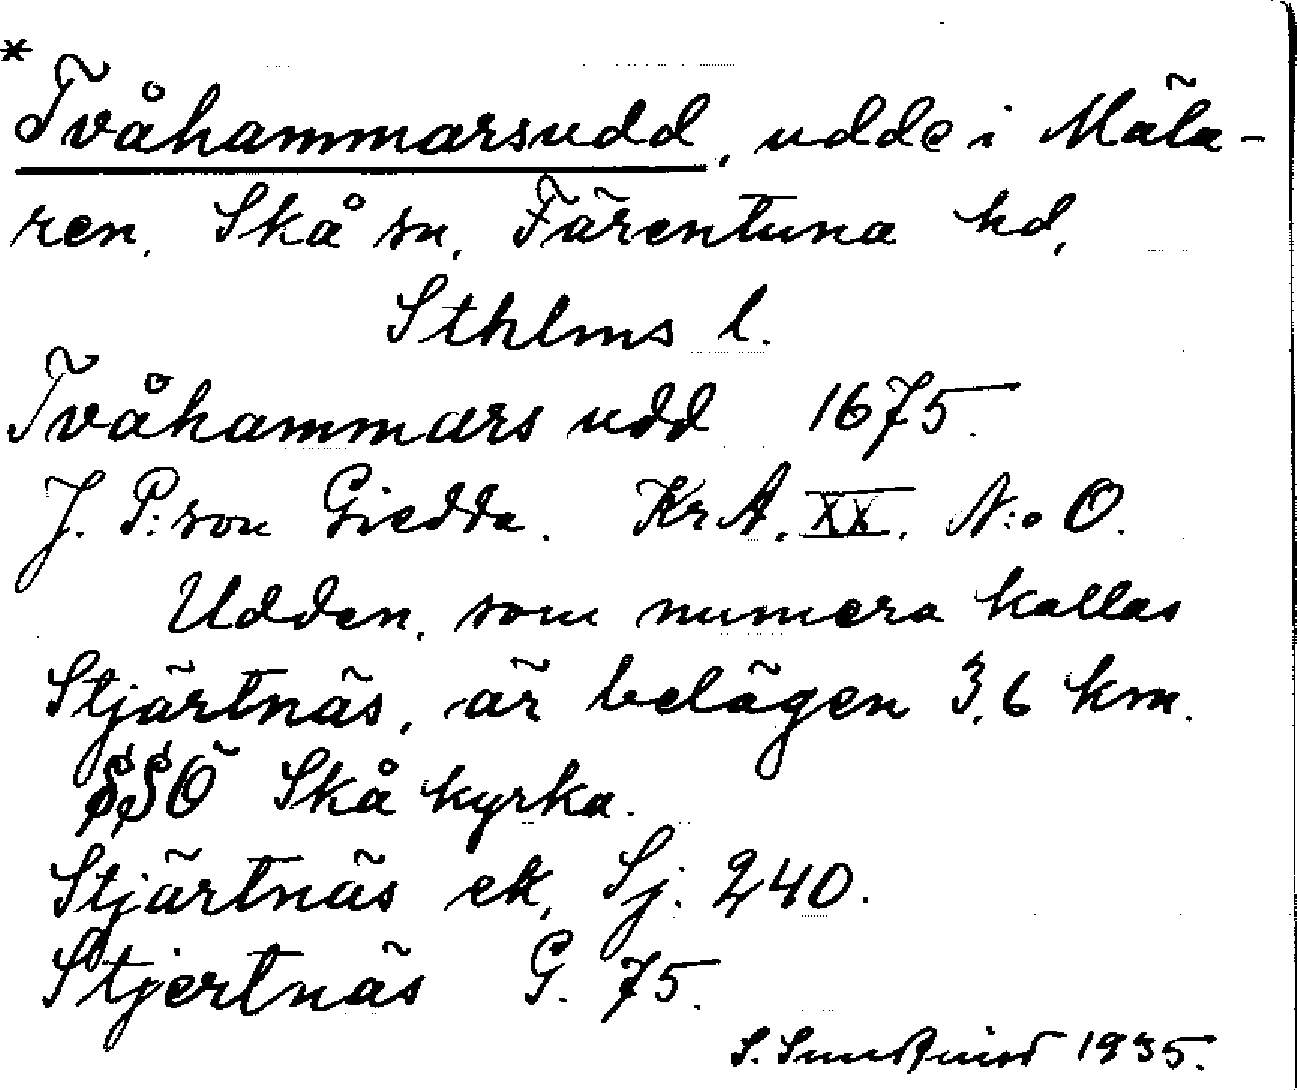 *Tvåhammarsudd, udde i Mäla-
ren, Skå sn, Färentuna hd,
Sthlms l.
Tvåhammars udd 1675.
J. P:son Giedda. KrA. XX. N:o O.
Udden, som numera kallas
Stjärtnäs, är belägen 3,6 km.
SSÖ Skå kyrka.
Stjärtnäs ek, Sj. 240.
Stjertnäs G. 75.
S. Sundkvist 1935.